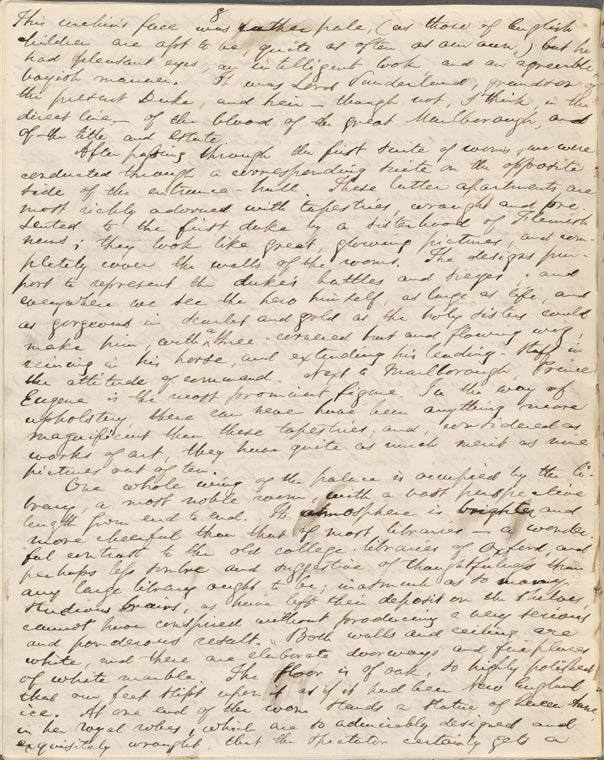 8
This urchin's face was rather pale, (as those of English
children are apt to be, quite as often as our own,) but he
had pleasant eyes, an intelligent look and an agreeable,
boyish manner. It was Lord Sunderland, grandson of
the present Duke, and heir—though not, I think, in the
direct line—of the blood of the great Marlborough, and
of the title and estate.
After passing through the first suite of rooms, we were
conducted through a corresponding suite on the opposite
side of the entrance-hall. These latter apartments are
most richly adorned with tapestries, wrought and pre-
sented to the first duke by a sisterhood of Flemish
nuns; they look like great, glowing pictures, and com-
pletely cover the walls of the rooms. The designs pur-
port to represent the duke's battles and sieges; and
everywhere we see the hero himself, as large as life, and
as gorgeous in scarlet and gold as the holy sisters could
make him, with a three-cornered hat and flowing wig,
reining in his horse, and extending his leading-staff in
the attitude of command. Next to Marlborough, Prince
Eugene is the most prominent figure. In the way of
upholstery, there can never have been anything more
magnificent than these tapestries; and, considered as
works of art, they have quite as much merit as nine
pictures out of ten.
One whole wing of the palace is occupied by the li-
brary, a most noble room, with a vast perspective
length from end to end. Its atmosphere is brighter and
more cheerful than that of most libraries—a wonder-
ful contrast to the old college-libraries of Oxford, and
perhaps less sombre and suggestive of thoughtfulness than
any large library ought to be; inasmuch as so many
studious brains, as have left their deposit on the shelves,
cannot have conspired without producing a very serious
and ponderous result. Both walls and ceiling are
white, and there are elaborate doorways and fireplaces
of white marble. The floor is of oak, so highly polished
that our feet slipt upon it as if it had been New England
ice. At one end of the room stands a statue of Queen Anne,
in her royal robes, which are so admirably designed and
exquisitely wrought, that the spectator certainly gets a